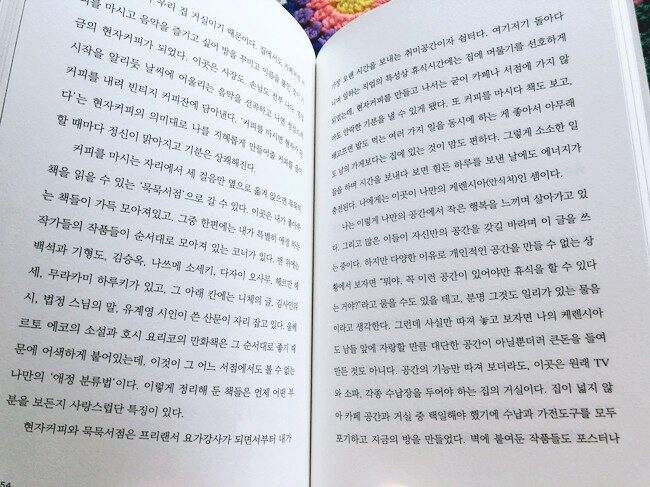 우리 집 거실이기 때문이다. 집에서도
커피를 마시고 음악을 즐기고 싶어 방을 꾸미고 이름을
금의 현자커피가 되었다. 이곳은 사장도, 손님도 전부 나다.
시작을 알리듯 날씨에 어울리는 음악을 선곡하고 나면 정성스레
커피를 내려 빈티지 커피잔에 담아낸다. '커피를 마시면 현자가 된
다'는 현자커피의 의미대로 나를 지혜롭게 만들어줄 커피를
할 때마다 정신이 맑아지고 기분은 상쾌해진다.
커피를 마시는 자리에서 세 걸음만 옆으로 옮겨 앉으면
책을 읽을 수 있는 '묵묵서점'으로 갈 수 있다. 이곳은 내가 좋아하
는 책들이 가득 모아져있고, 그중 한편에는 내가 특별히 애정 하는
작가들의 작품들이 순서대로 모아져 있는 코너가 있다. 맨 위에는
백석과 기형도, 김승옥, 나쓰메 소세키, 다자이 오사무, 헤르만 헤
세, 무라카미 하루키가 있고, 그 아래 칸에는 니체의 글, 김사인의
시, 법정 스님의 말, 유계영 시인이 쓴 산문이 자리 잡고 있다. 움베
르토 에코의 소설과 호시 요리코의 만화책은 그 순서대로 좋기 때
문에 어색하게 붙어있는데, 이것이 그 어느 서점에서도 볼 수 없는
나만의 '애정 분류법'이다. 이렇게 정리해 둔 책들은 언제 어떤 부
분을 보든지 사랑스럽단 특징이 있다.
현자커피와 묵묵서점은 프리랜서 요가강사가 되면서부터 내가
54
가장 오랜 시간을 보내는 취미공간이자 쉼터다. 여기저기 돌아다
니며 일하는 직업의 특성상 휴식시간에는 집에 머물기를 선호하게
되었는데, 현자커피를 만들고 나서는 굳이 카페나 서점에 가지 않
아도 안락한 기분을 낼 수 있게 됐다. 또 커피를 마시다 책도 보고,
배고프면 밥도 먹는 여러 가지 일을 동시에 하는 게 좋아서 아무래
도 남의 가게보다는 집에 있는 것이 맘도 편하다. 그렇게 소소한 일
들을 하며 시간을 보내다 보면 힘든 하루를 보낸 날에도 에너지가
충전된다. 나에게는 이곳이 나만의 케렌시아(안식처)인 셈이다.
나는 이렇게 나만의 공간에서 작은 행복을 느끼며 살아가고 있
다. 그리고 많은 이들이 자신만의 공간을 갖길 바라며 이 글을 쓰
는 중이다. 하지만 다양한 이유로 개인적인 공간을 만들 수 없는 상
황에서 보자면 "뭐야, 꼭 이런 공간이 있어야만 휴식을 할 수 있다
는 거야?"라고 물을 수도 있을 테고, 분명 그것도 일리가 있는 물음
이라고 생각한다. 그런데 사실만 따져 놓고 보자면 나의 케렌시아
도 남들 앞에 자랑할 만큼 대단한 공간이 아닐뿐더러 큰돈을 들여
만든 것도 아니다. 공간의 기능만 따져 보더라도, 이곳은 원래 TV
와 소파, 각종 수납장을 두어야 하는 집의 거실이다. 집이 넓지 않
아 카페 공간과 거실 중 택일해야 했기에 수납과 가전도구를 모두
포기하고 지금의 방을 만들었다. 벽에 붙여둔 작품들도 포스터나